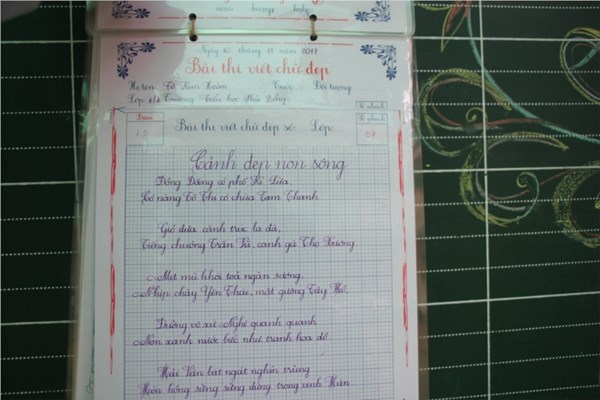 Ngày 10 tháng 11 năm 2017
Bài thi viết chữ đẹp
Họ tên: Tô Kim
Lớp 4/1 Trường Tiểu học Phù Đổng
Điểm
Bài thi viết chữ đẹp số: Lớp:
Số phách
07
Cảnh đẹp non sông
Đồng Đăng có phố Kì Lừa,
Có nàng Tô Thị có chùa Tam Thanh
Gió đưa cành trúc la đà,
Tiếng chuông Trấn Vũ, canh gà Thọ Xương.
Mịt mù khói toả ngàn sương,
Nhịp chày Yên Thái, mặt gương Tây Hồ.
Đường vô xứ Nghệ quanh quanh
Non xanh nước biếc như tranh hoạ đồ.
Hải Vân bát ngát nghìn trùng
Hòn hồng sừng sững đứng trong vịnh Hàn.